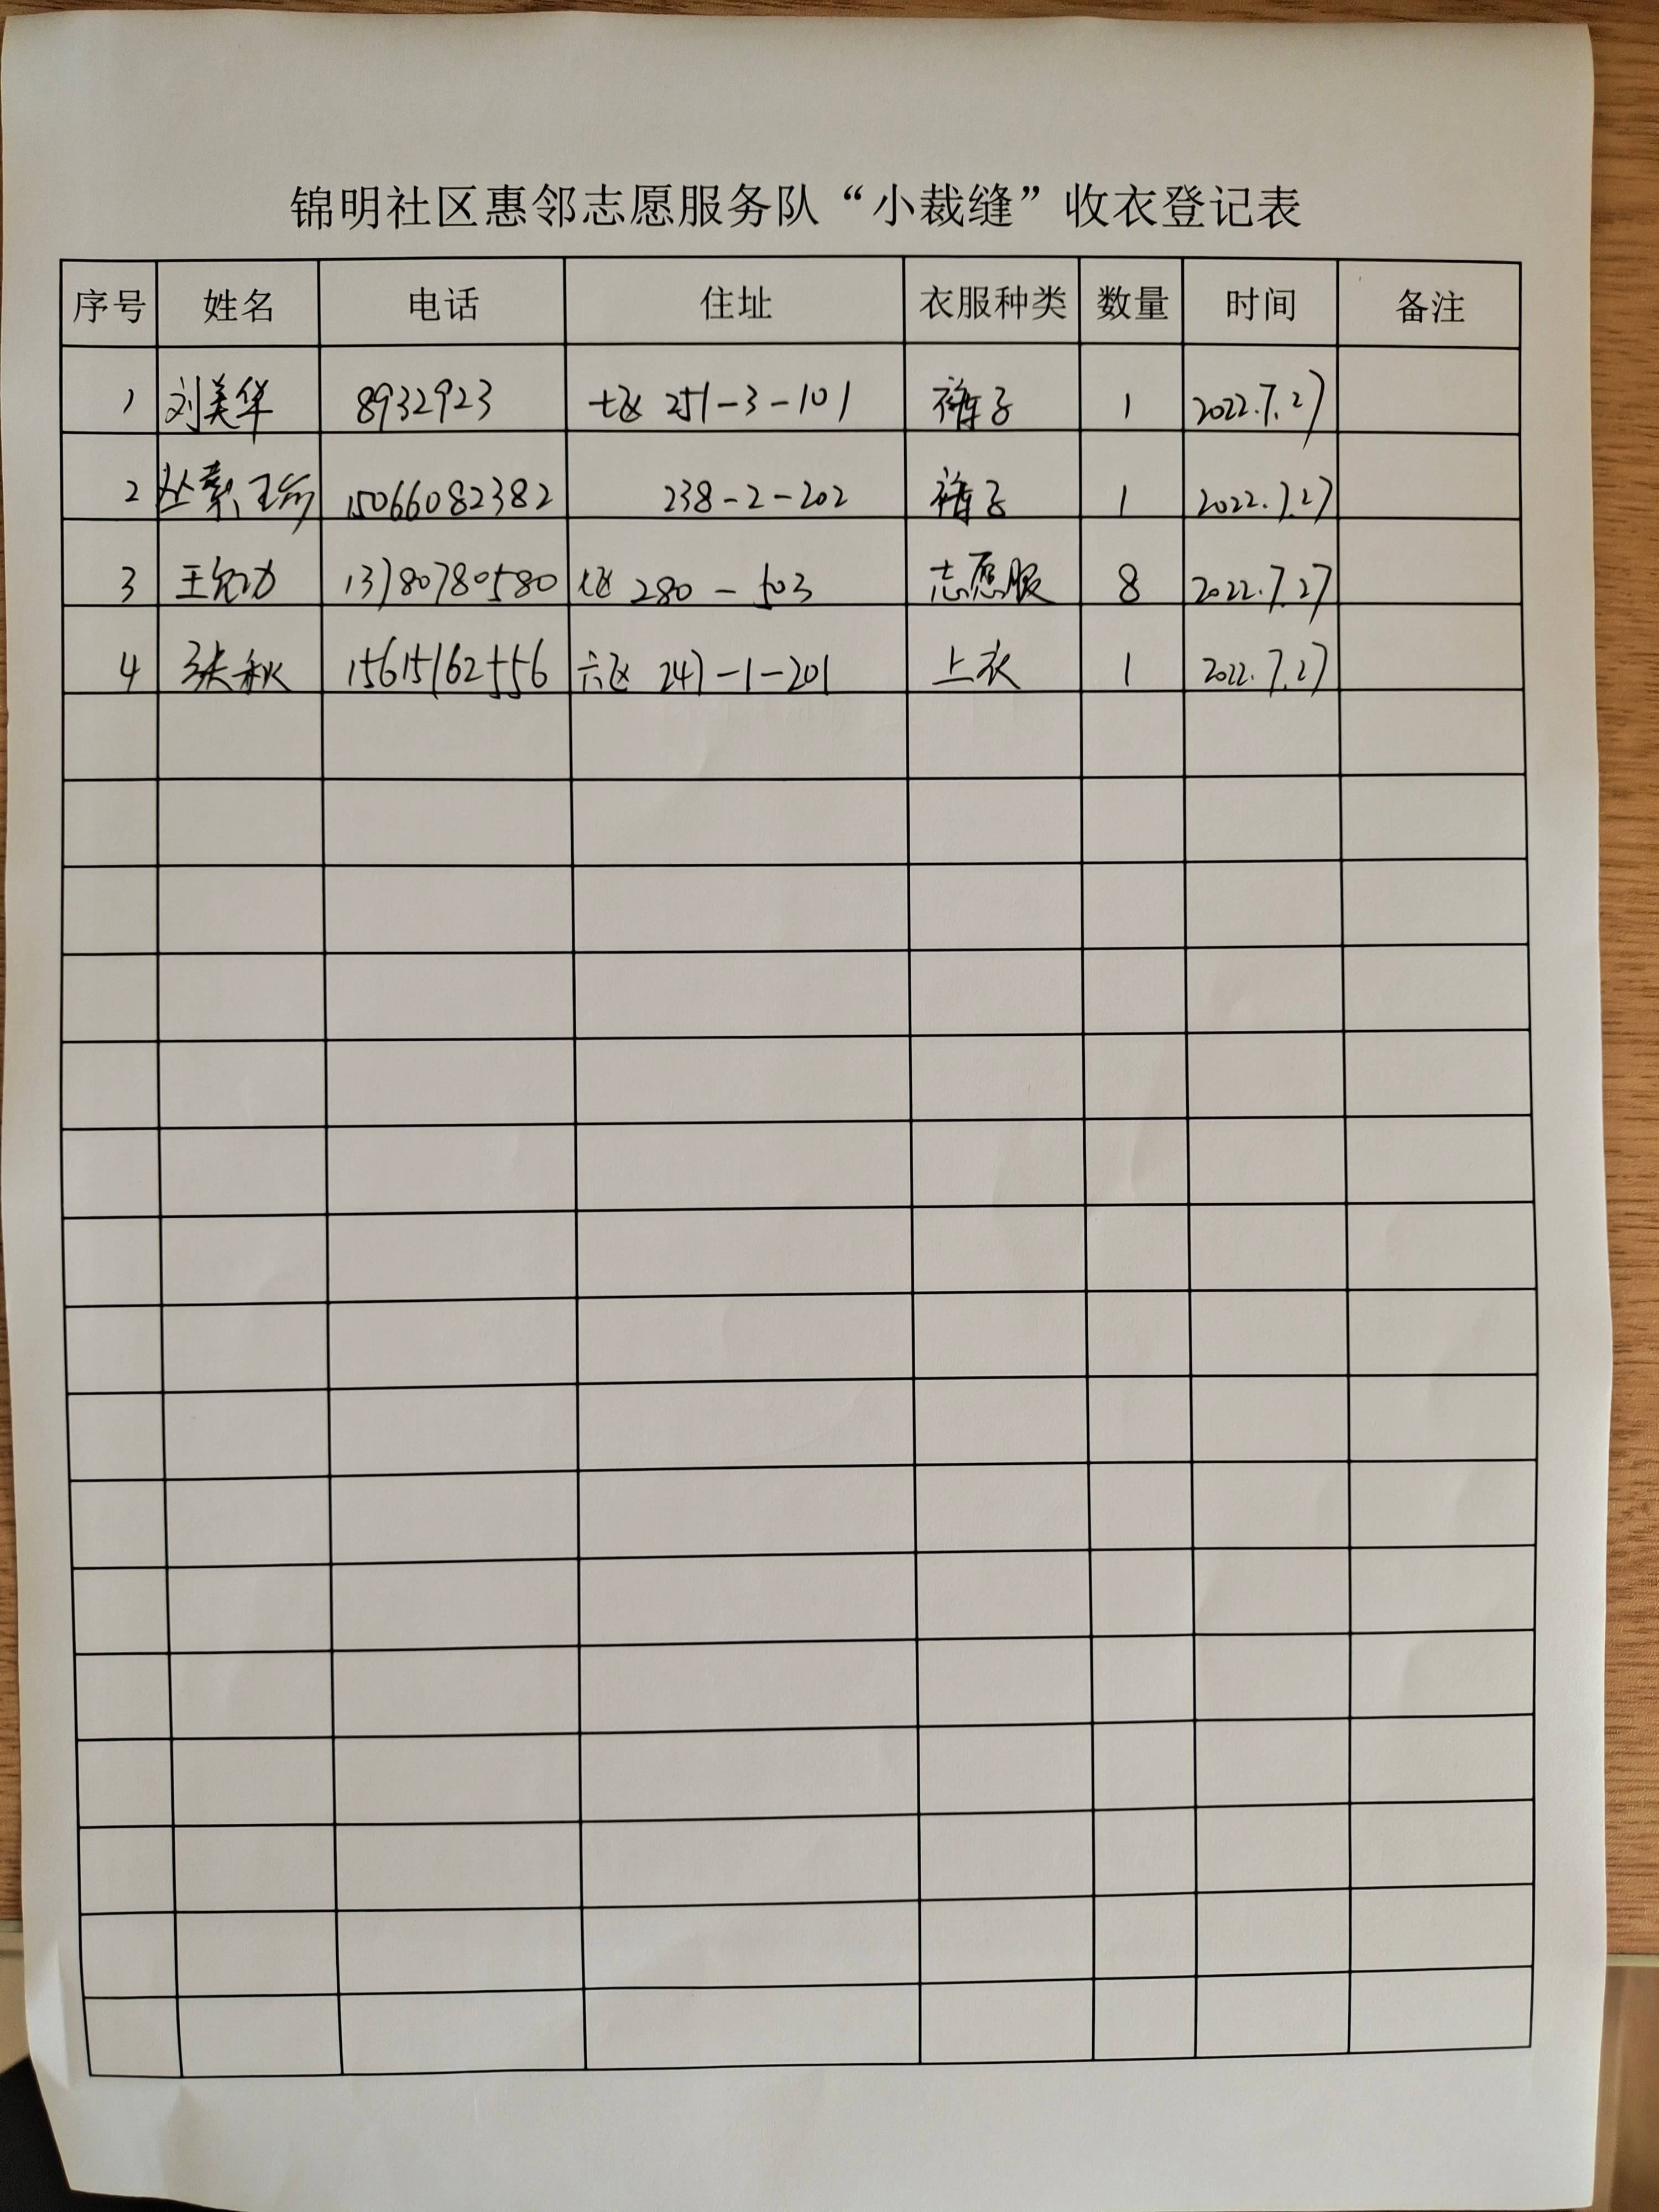 锦明社区惠邻志愿服务队“小裁缝”收衣登记表
序号 姓名 电话 住址 衣服种类 数量 时间 备注
1 刘美华 8932923 七区 251-3-101 裤子 1 2022.7.27
2 丛 15066082382 238-2-202 裤子 1 2022.7.27
3 王 13780780580 七区 280-503 志愿服 8 2022.7.27
4 张秋 15615162556 六区 247-1-201 上衣 1 2022.7.27